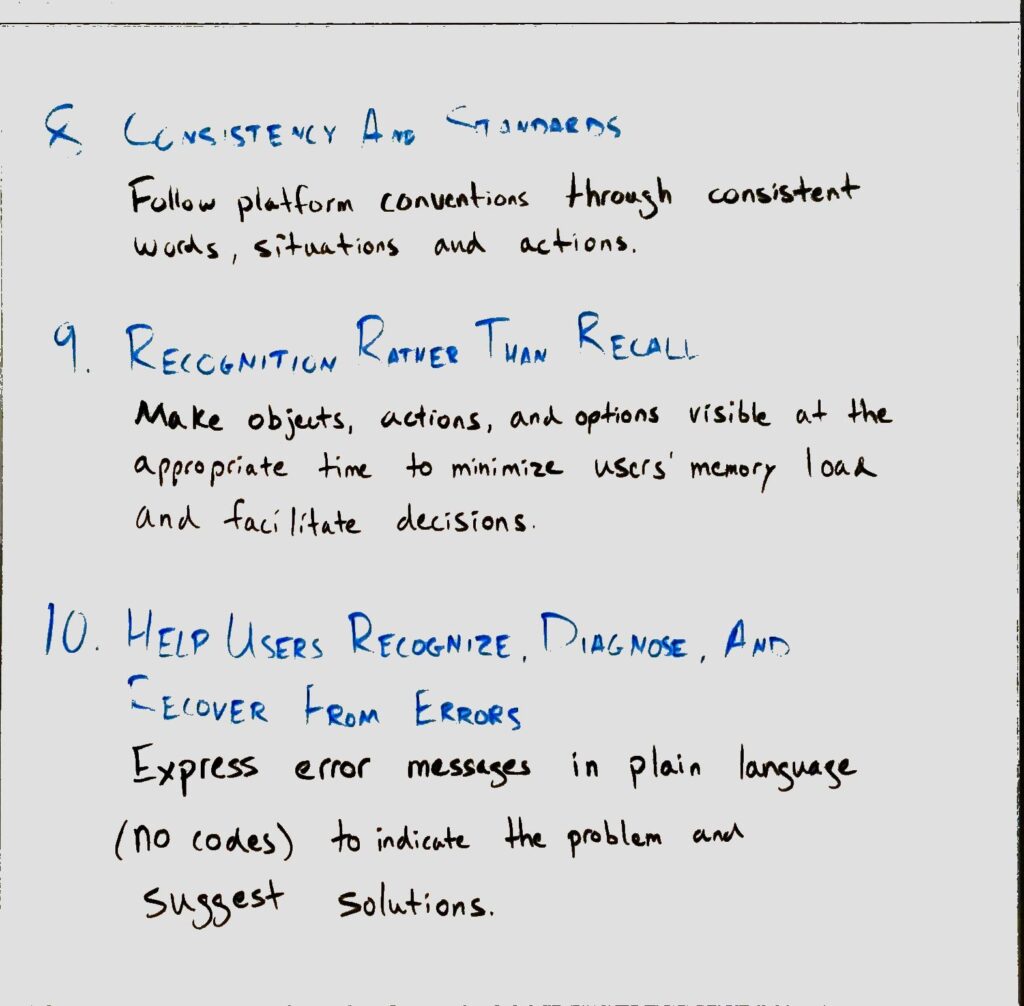 8 CONSISTENCY AND STANDARDS
Follow platform conventions through consistent
words, situations and actions.
9. RECOGNITION RATHER THAN RECALL
Make objects, actions, and options visible at the
appropriate time to minimize users' memory load
and facilitate decisions.
10. HELP USERS RECOGNIZE, DIAGNOSE, AND
RECOVER FROM ERRORS
Express error messages in plain language
(no codes) to indicate the problem and
suggest solutions.